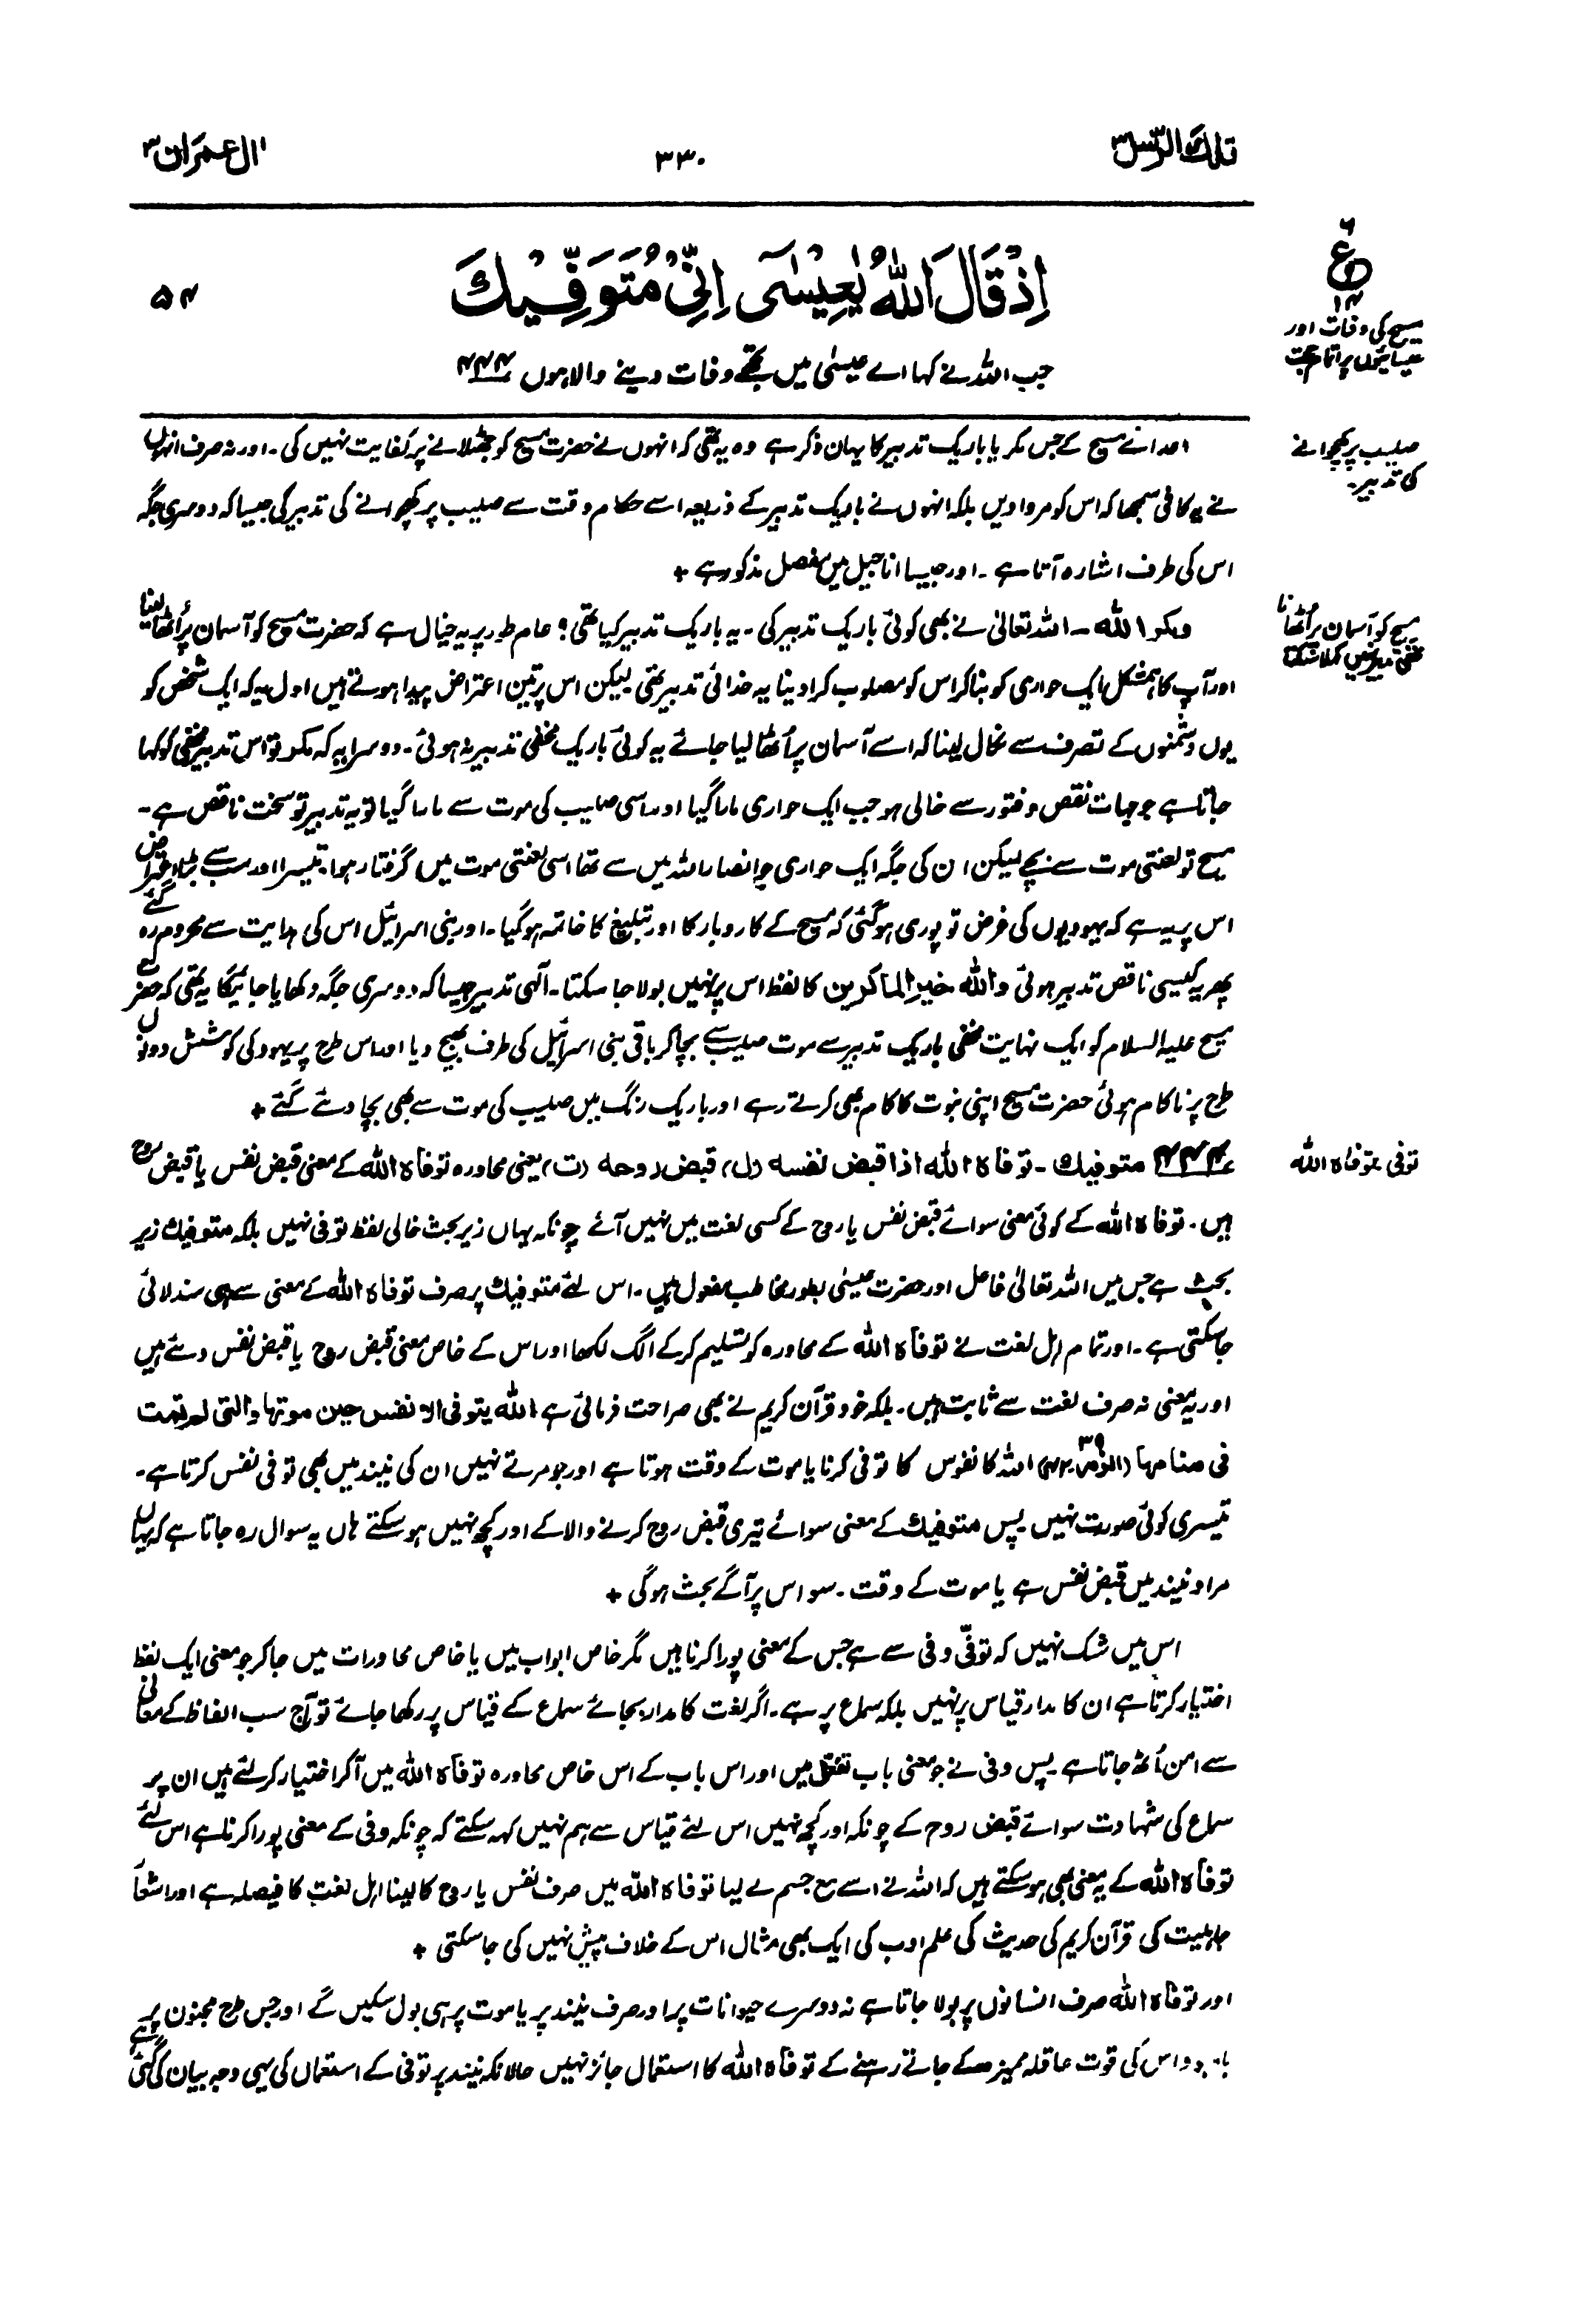 تلك الرسل ۳
۳۳۰
اٰل عمران ۳
ع
۶
۱۴
مسیح کی وفات اور
عیسائیوں پر اتمام حجت
اِذْ قَالَ اللّٰهُ يٰعِيْسٰٓى اِنِّىْ مُتَوَفِّيْكَ
۵۴
جب اللہ نے کہا اے عیسٰی میں تجھے وفات دینے والا ہوں ۴۴۴
صلیب پر کھچوانے
کی تدبیر۔
اعدائے مسیح کے جس مکر یا باریک تدبیر کا یہاں ذکر ہے وہ یہ تھی کہ انہوں نے حضرت مسیح کو جھٹلانے پر کفایت نہیں کی۔ اور نہ صرف انہوں
نے یہ کافی سمجھا کہ اس کو مروا دیں بلکہ انہوں نے باریک تدبیر کے ذریعہ اسے حکام وقت سے صلیب پر کھچوانے کی تدبیر کی جیسا کہ دوسری جگہ
اس کی طرف اشارہ آتا ہے۔ اور جیسا اناجیل میں مفصل مذکور ہے +
مسیح کو آسمان پر اُٹھانا
مخفی تدبیر نہیں کہلا سکتا
ومکر اللہ ۔ اللہ تعالیٰ نے بھی کوئی باریک تدبیر کی۔ یہ باریک تدبیر کیا تھی؟ عام طور پر یہ خیال ہے کہ حضرت مسیح کو آسمان پر اُٹھا لینا
اور آپ کا ہمشکل ایک حواری کو بنا کر اس کو مصلوب کرا دینا یہ خدائی تدبیر تھی لیکن اس پر تین اعتراض پیدا ہوتے ہیں اول یہ کہ ایک شخص کو
یوں دشمنوں کے تصرف سے نکال لینا کہ اسے آسمان پر اُٹھا لیا جائے یہ کوئی باریک مخفی تدبیر نہ ہوئی۔ دوسرا یہ کہ مکر تو اس تدبیر مخفی کو کہا
جاتا ہے جو جہات نقص و فتور سے خالی ہو جب ایک حواری مارا گیا اور اسی صلیب کی موت سے مارا گیا تو یہ تدبیر تو سخت ناقص ہے۔
مسیح تو لعنتی موت سے بچے لیکن ان کی جگہ ایک حواری جو انصار اللہ میں سے تھا اسی لعنتی موت میں گرفتار ہوا۔ تیسرا اور سب سے بڑا اعتراض
اس پر یہ ہے کہ یہودیوں کی غرض تو پوری ہو گئی کہ مسیح کے کاروبار کا اور تبلیغ کا خاتمہ ہو گیا۔ اور بنی اسرائیل اس کی ہدایت سے محروم رہ گئے
پھر یہ کیسی ناقص تدبیر ہوئی واللہ خیر الماکرین کا لفظ اس پر نہیں بولا جا سکتا۔ الٰہی تدبیر جیسا کہ دوسری جگہ دکھایا جائیگا یہ تھی کہ حضرت
مسیح علیہ السلام کو ایک نہایت مخفی باریک تدبیر سے موت صلیب سے بچا کر باقی بنی اسرائیل کی طرف بھیج دیا اور اس طرح پر یہود کی کوشش دونوں
طرح پر ناکام ہوئی حضرت مسیح اپنی نبوت کا کام بھی کرتے رہے اور باریک رنگ میں صلیب کی موت سے بھی بچا دئے گئے +
توفی، توفاہ اللہ
۴۴۴ متوفیك ۔ توفاہ اللہ اذا قبض نفسه (ل) قبض روحه (ت) یعنی محاورہ توفاہ اللہ کے معنی قبض نفس یا قبض روح
ہیں۔ توفاہ اللہ کے کوئی معنی سوائے قبض نفس یا روح کے کسی لغت میں نہیں آئے چونکہ یہاں زیر بحث خالی لفظ توفی نہیں بلکہ متوفیك زیر
بحث ہے جس میں اللہ تعالیٰ فاعل اور حضرت عیسٰی بطور مخاطب مفعول ہیں۔ اس لئے متوفیك پر صرف توفاہ اللہ کے معنی سے ہی سند لائی
جا سکتی ہے۔ اور تمام اہل لغت نے توفاہ اللہ کے محاورہ کو تسلیم کر کے الگ لکھا اور اس کے خاص معنی قبض روح یا قبض نفس دئے ہیں
اور یہ معنی نہ صرف لغت سے ثابت ہیں۔ بلکہ خود قرآن کریم نے بھی صراحت فرمائی ہے اللہ یتوفی الانفس حین موتها والتی لم تمت
فی منامها (الزمر ۳۹۔۴۲) اللہ کا نفوس کا توفی کرنا یا موت کے وقت ہوتا ہے اور جو مرتے نہیں ان کی نیند میں بھی توفی نفس کرتا ہے۔
تیسری کوئی صورت نہیں۔ پس متوفیك کے معنی سوائے تیری قبض روح کرنے والا کے اور کچھ نہیں ہو سکتے ہاں یہ سوال رہ جاتا ہے کہ یہاں
مراد نیند میں قبض نفس ہے یا موت کے وقت۔ سو اس پر آگے بحث ہو گی +
اس میں شک نہیں کہ توفّی وفی سے ہے جس کے معنی پورا کرنا ہیں مگر خاص ابواب میں یا خاص محاورات میں جا کر جو معنی ایک لفظ
اختیار کرتا ہے ان کا مدار قیاس پر نہیں بلکہ سماع پر ہے۔ اگر لغت کا مدار بجائے سماع کے قیاس پر رکھا جائے تو آج سب الفاظ کے معانی
سے امن اُٹھ جاتا ہے۔ پس وفی نے جو معنی باب تفعّل میں اور اس باب کے اس خاص محاورہ توفاہ اللہ میں آ کر اختیار کر لئے ہیں ان پر
سماع کی شہادت سوائے قبض روح کے چونکہ اور کچھ نہیں اس لئے قیاس سے ہم نہیں کہہ سکتے کہ چونکہ وفی کے معنی پورا کرنا ہے اس لئے
توفاہ اللہ کے یہ معنی بھی ہو سکتے ہیں کہ اللہ نے اسے مع جسم لے لیا توفاہ اللہ میں صرف نفس یا روح کا لینا اہل لغت کا فیصلہ ہے اور اشعار
جاہلیت کی قرآن کریم کی حدیث کی علم ادب کی ایک بھی مثال اس کے خلاف پیش نہیں کی جا سکتی +
اور توفاہ اللہ صرف انسانوں پر بولا جاتا ہے نہ دوسرے حیوانات پر اور صرف نیند پر یا موت پر ہی بول سکیں گے اور جس طرح مجنون پر
باوجود اس کی قوت عاقلہ ممیزہ کے جاتے رہنے کے توفاہ اللہ کا استعمال جائز نہیں حالانکہ نیند پر توفی کے استعمال کی یہی وجہ بیان کی گئی ہے